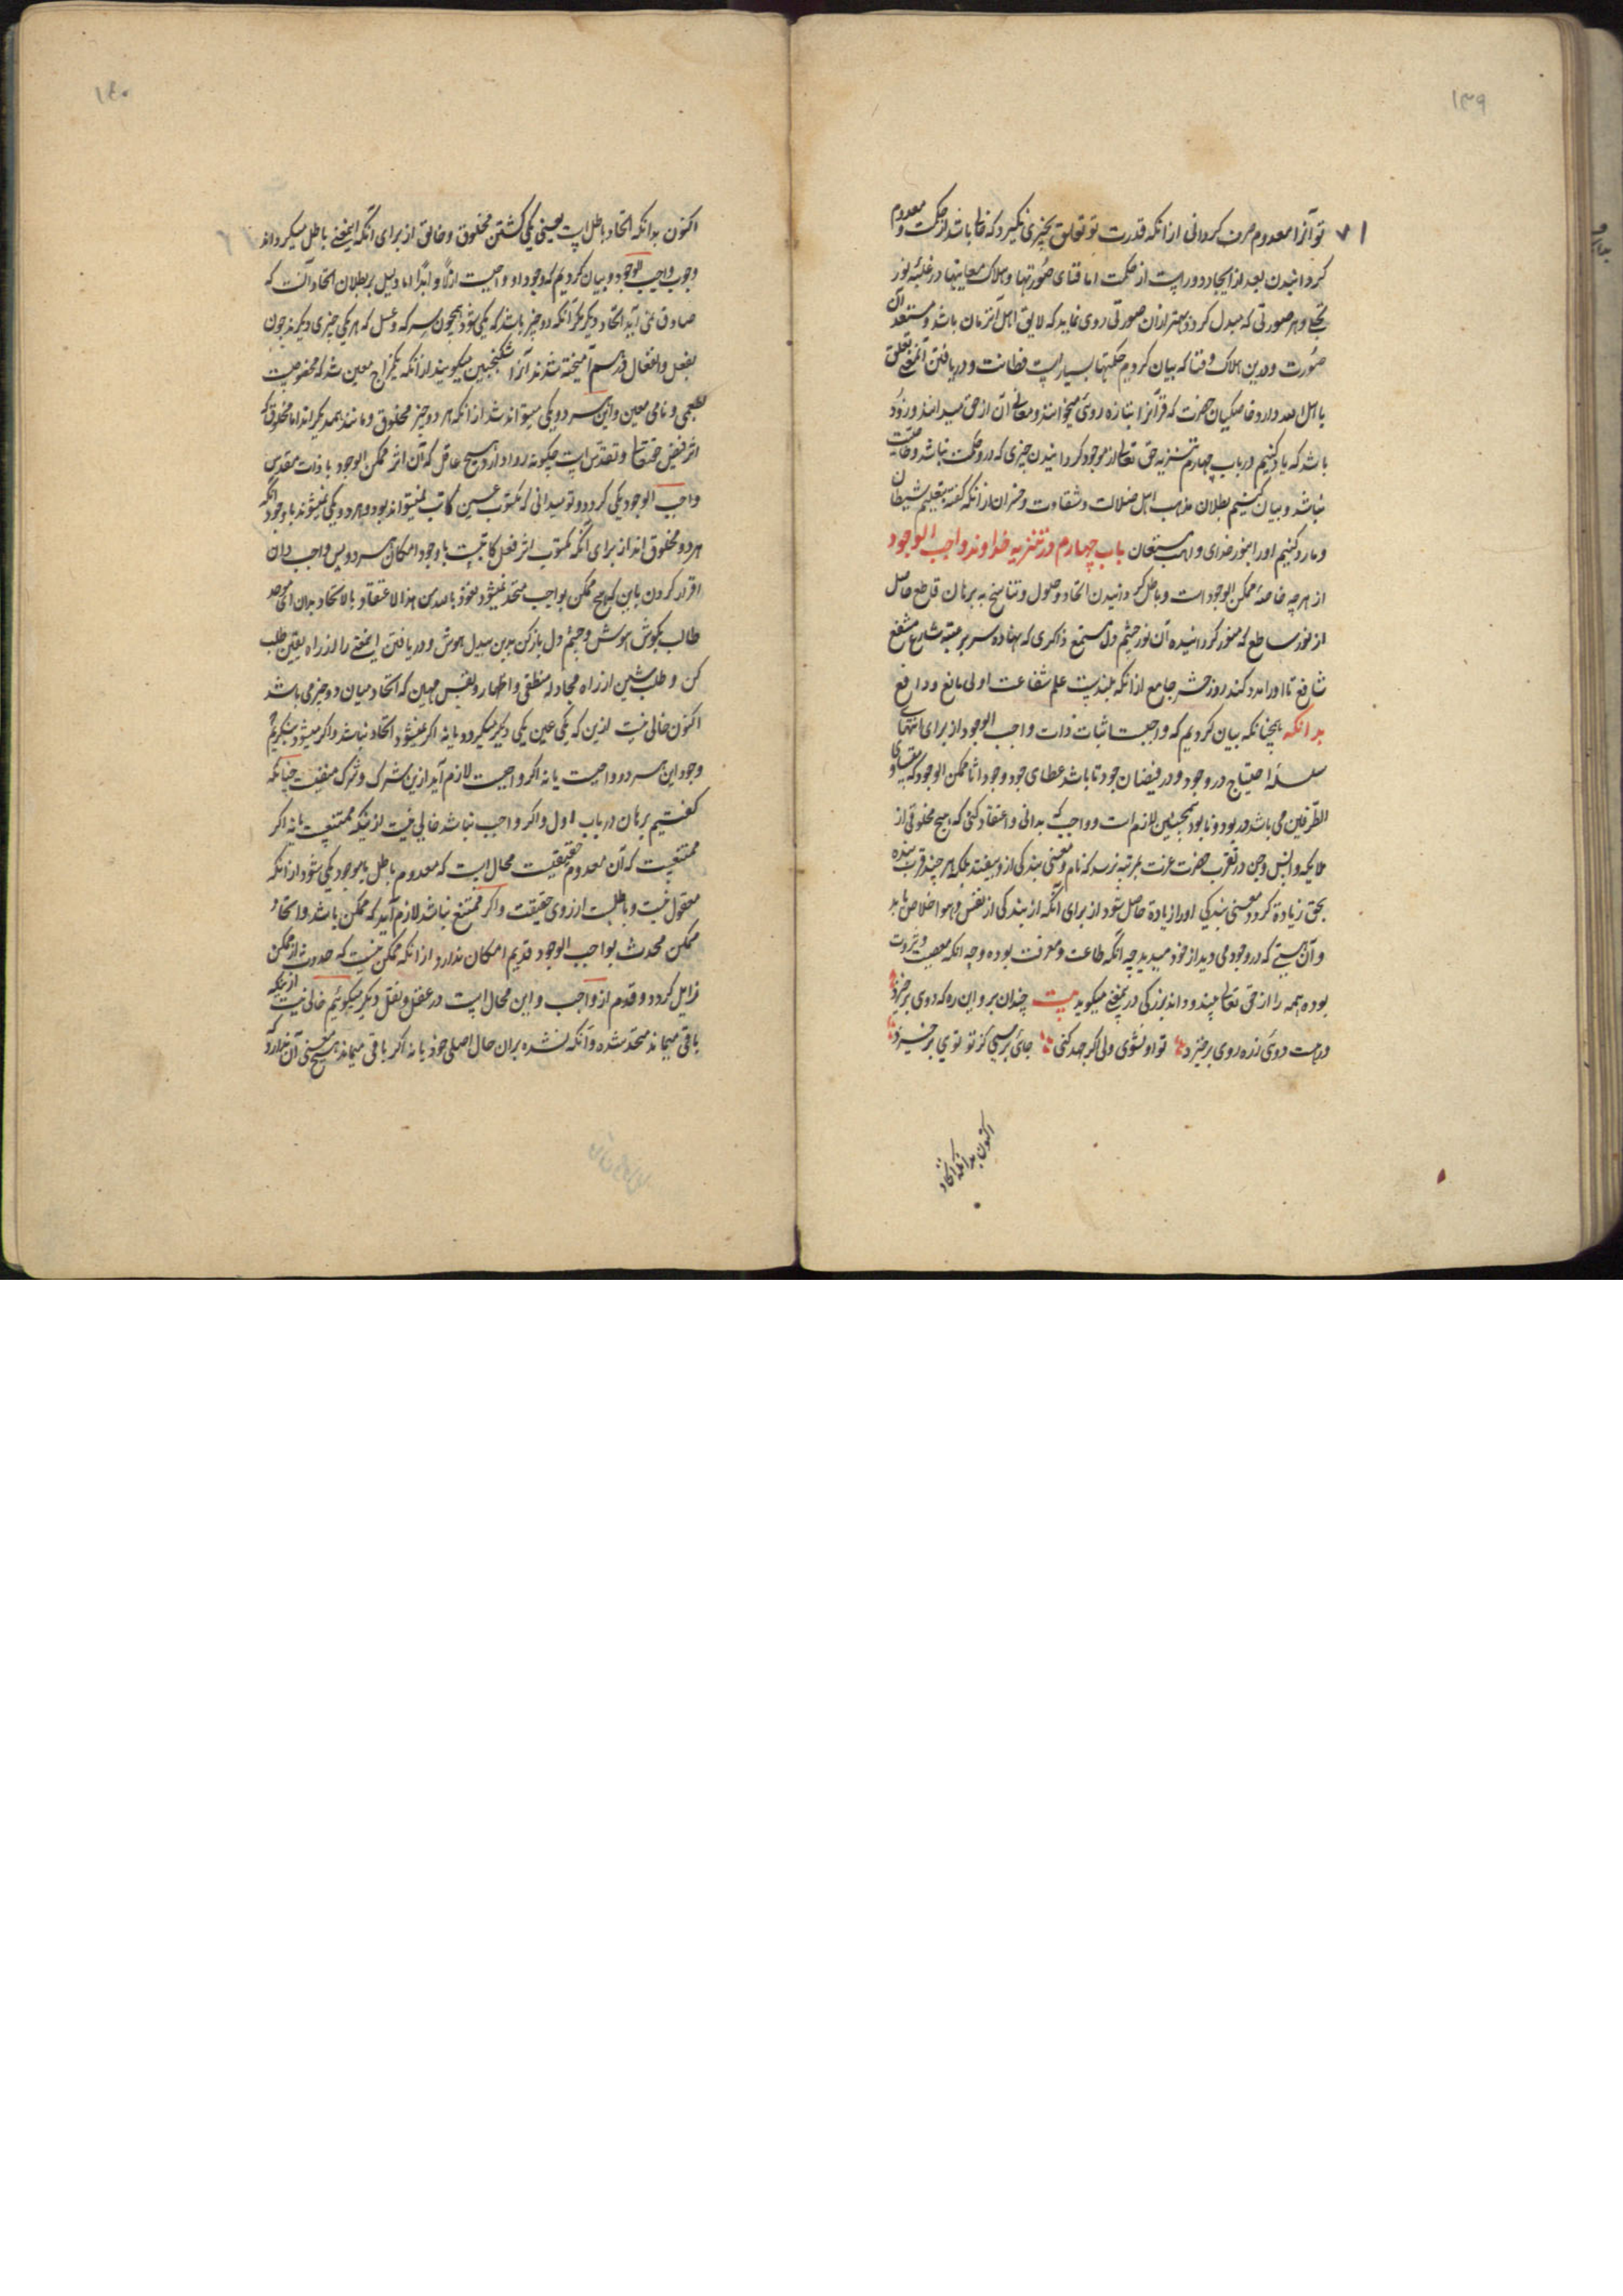 ۱۳۹
۷۱
تو آنرا معدوم صرف کردانی از انکه قدرت تو تعلق بچیزی نکیرد که خالی باشد از حکمت و معدوم
کردانیدن بعد از ایجاد دور است از حکمت اما فنای صورتها و هلاک معاینها در غلبهٔ نور
تجلی و هر صورتی که مبدل کردد بهتر از آن صورتی روی نماید که لایق اهل آنزمان باشد و مستعد آن
صورت و درین هلاک و فنا که بیان کردیم حکمتها بسیار است فطانت و دریافتن آنمعنی تعلق
با اهل الله دارد خاصکیان حضرت که قرآنرا بتازه روی میخوانند و معانی آن از حق میدانند و زود
باشد که یاد کنیم در باب چهارم تنزیه حق تعالی از موجود کردانیدن چیزی که درو حکمت نباشد و خاصیت
نباشد و بیان کنیم بطلان مذهب اهل ضلالت و شقاوت و خسران از انکه کفته بتعلیم شیطان
و ما رد کنیم او را بنور خدای والله المستعان باب چهارم در تنزیه خداوند واجب الوجود
از هر چه خاصهٔ ممکن الوجود است و باطل کردانیدن اتحاد و حلول و تناسخ به برهان قاطع حاصل
از نور ساطع که منور کردانیده آن نور چشم دل مستمع ذاکری که نهاده سر بر متبه شارع مشفع
شافع تا او را مدد کند روز حشر جامع از انکه بلندست علم شفاعت اولی مانع و دافع
بدانکه همچنانکه بیان کردیم که واجبست اثبات ذات واجب الوجود از برای انتهای
سلسلهٔ احتیاج در وجود و در فیضان جود تا باشد عطای جود وجود اشا ممکن الوجود که متساوی
الطرفین می باشد در بود و نابود همچنین لازم است و واجب که بدانی و اعتقاد کنی که هیچ مخلوقی از
ملایکه و انس و جن در تقرب حضرت عزت بمرتبه نرسد که نام و معنی بندکی ازو بیفتد بلکه هر چند قرب بنده
بحق زیادة کردد معنی بندکی او را زیادة حاصل شود از برای آنکه از بندکی از نفس و هوا خلاص یابد
و آن هستی که در وجود می دید از خود میدید چه آنکه طاعت و معرفت بوده و چه انکه معصیت و ثروت
بوده همه را از حق تعالی بیند و داند بزرکی درینمعنی میکوید بیت چندان برو این ره که دوی برخیزد
ور هست دوی زره روی برخیزد تو او نشوی ولی اکر جهد کنی جائی برسی کز تو توی برخیزد
اکنون بدانکه اتحاد
۱۴۰
اکنون بدانکه اتحاد باطل است یعنی یکی کشتن مخلوق و خالق از برای آنکه اینمعنی باطل میکرداند
وجوب واجب الوجود و بیان کردیم که وجود او واجبست ازلا و ابدا اما دلیل بر بطلان اتحاد آنست که
صادق نمی آید اتحاد دیکر مکر آنکه دو چیز باشد که یکی شود همچون سرکه و عسل که هر یکی چیزی دیکرند چون
بفعل و انفعال در هم آمیخته شدند آنرا سکنجبین میکویند از انکه یکمزاج معین شد که مخصوصست
بطعمی و نامی معین و این هر دو یکی میتواند شد از انکه هر دو چیز مخلوق و مانند همدیکراند اما مخلوق که
اثر فیض حقتعالی و تقدس است چکونه روا دارد هیچ عاقل که آن اثر ممکن الوجود با ذات مقدس
واجب الوجود یکی کردد و تو میدانی که مکتوب عین کاتب نمیتواند بود و هر دو یکی نمیشوند با وجود آنکه
هر دو مخلوق اند از برای آنکه مکتوب اثر فعل کاتبست با وجود امکان هر دو پس واجب دان
اقرار کردن باین که هیچ ممکن بواجب متحد نمیشود نعوذ بالله من هذا الاعتقاد بالاتحاد بدان ای موحد
طالب بکوش هوش و چشم دل باز کن بدین سبیل هوش و دریافتن اینمعنی را از راه یقین طلب
کن و طلب مشین از راه مجادله منطقی و اظهار و نفس مهین که اتحاد میان دو چیز می باشد
اکنون خالی نیست ازین که یکی عین یکی دیکر میکردد یا نه اکر نمیشود اتحاد نباشد و اکر میشود بنکریم
وجود این هر دو واجبست یا نه اکر واجبست لازم آید ازین شرک و شرک منفیست چنانکه
کفتیم برهان در باب اول و اکر واجب نباشد خالی نیست ازینکه ممتنعست یا نه اکر
ممتنعست که آن معدوم حقیقیست محال است که معدوم باطل با موجود یکی شود از انکه
معقول نیست و باطلست از روی حقیقت و اکر ممتنع نباشد لازم آید که ممکن باشد و اتحاد
ممکن محدث بواجب الوجود قدیم امکان ندارد از انکه ممکن نیست که حدوث از ممکن
زایل کردد و قدم از واجب و این محال است در عقل و نقل دیکر میکوئیم خالی نیست ازینکه
باقی میماند متحد شده و آنکه نشده بران حال اصلی خود یا نه اکر باقی میماند هیچ معنی آن ندارد که